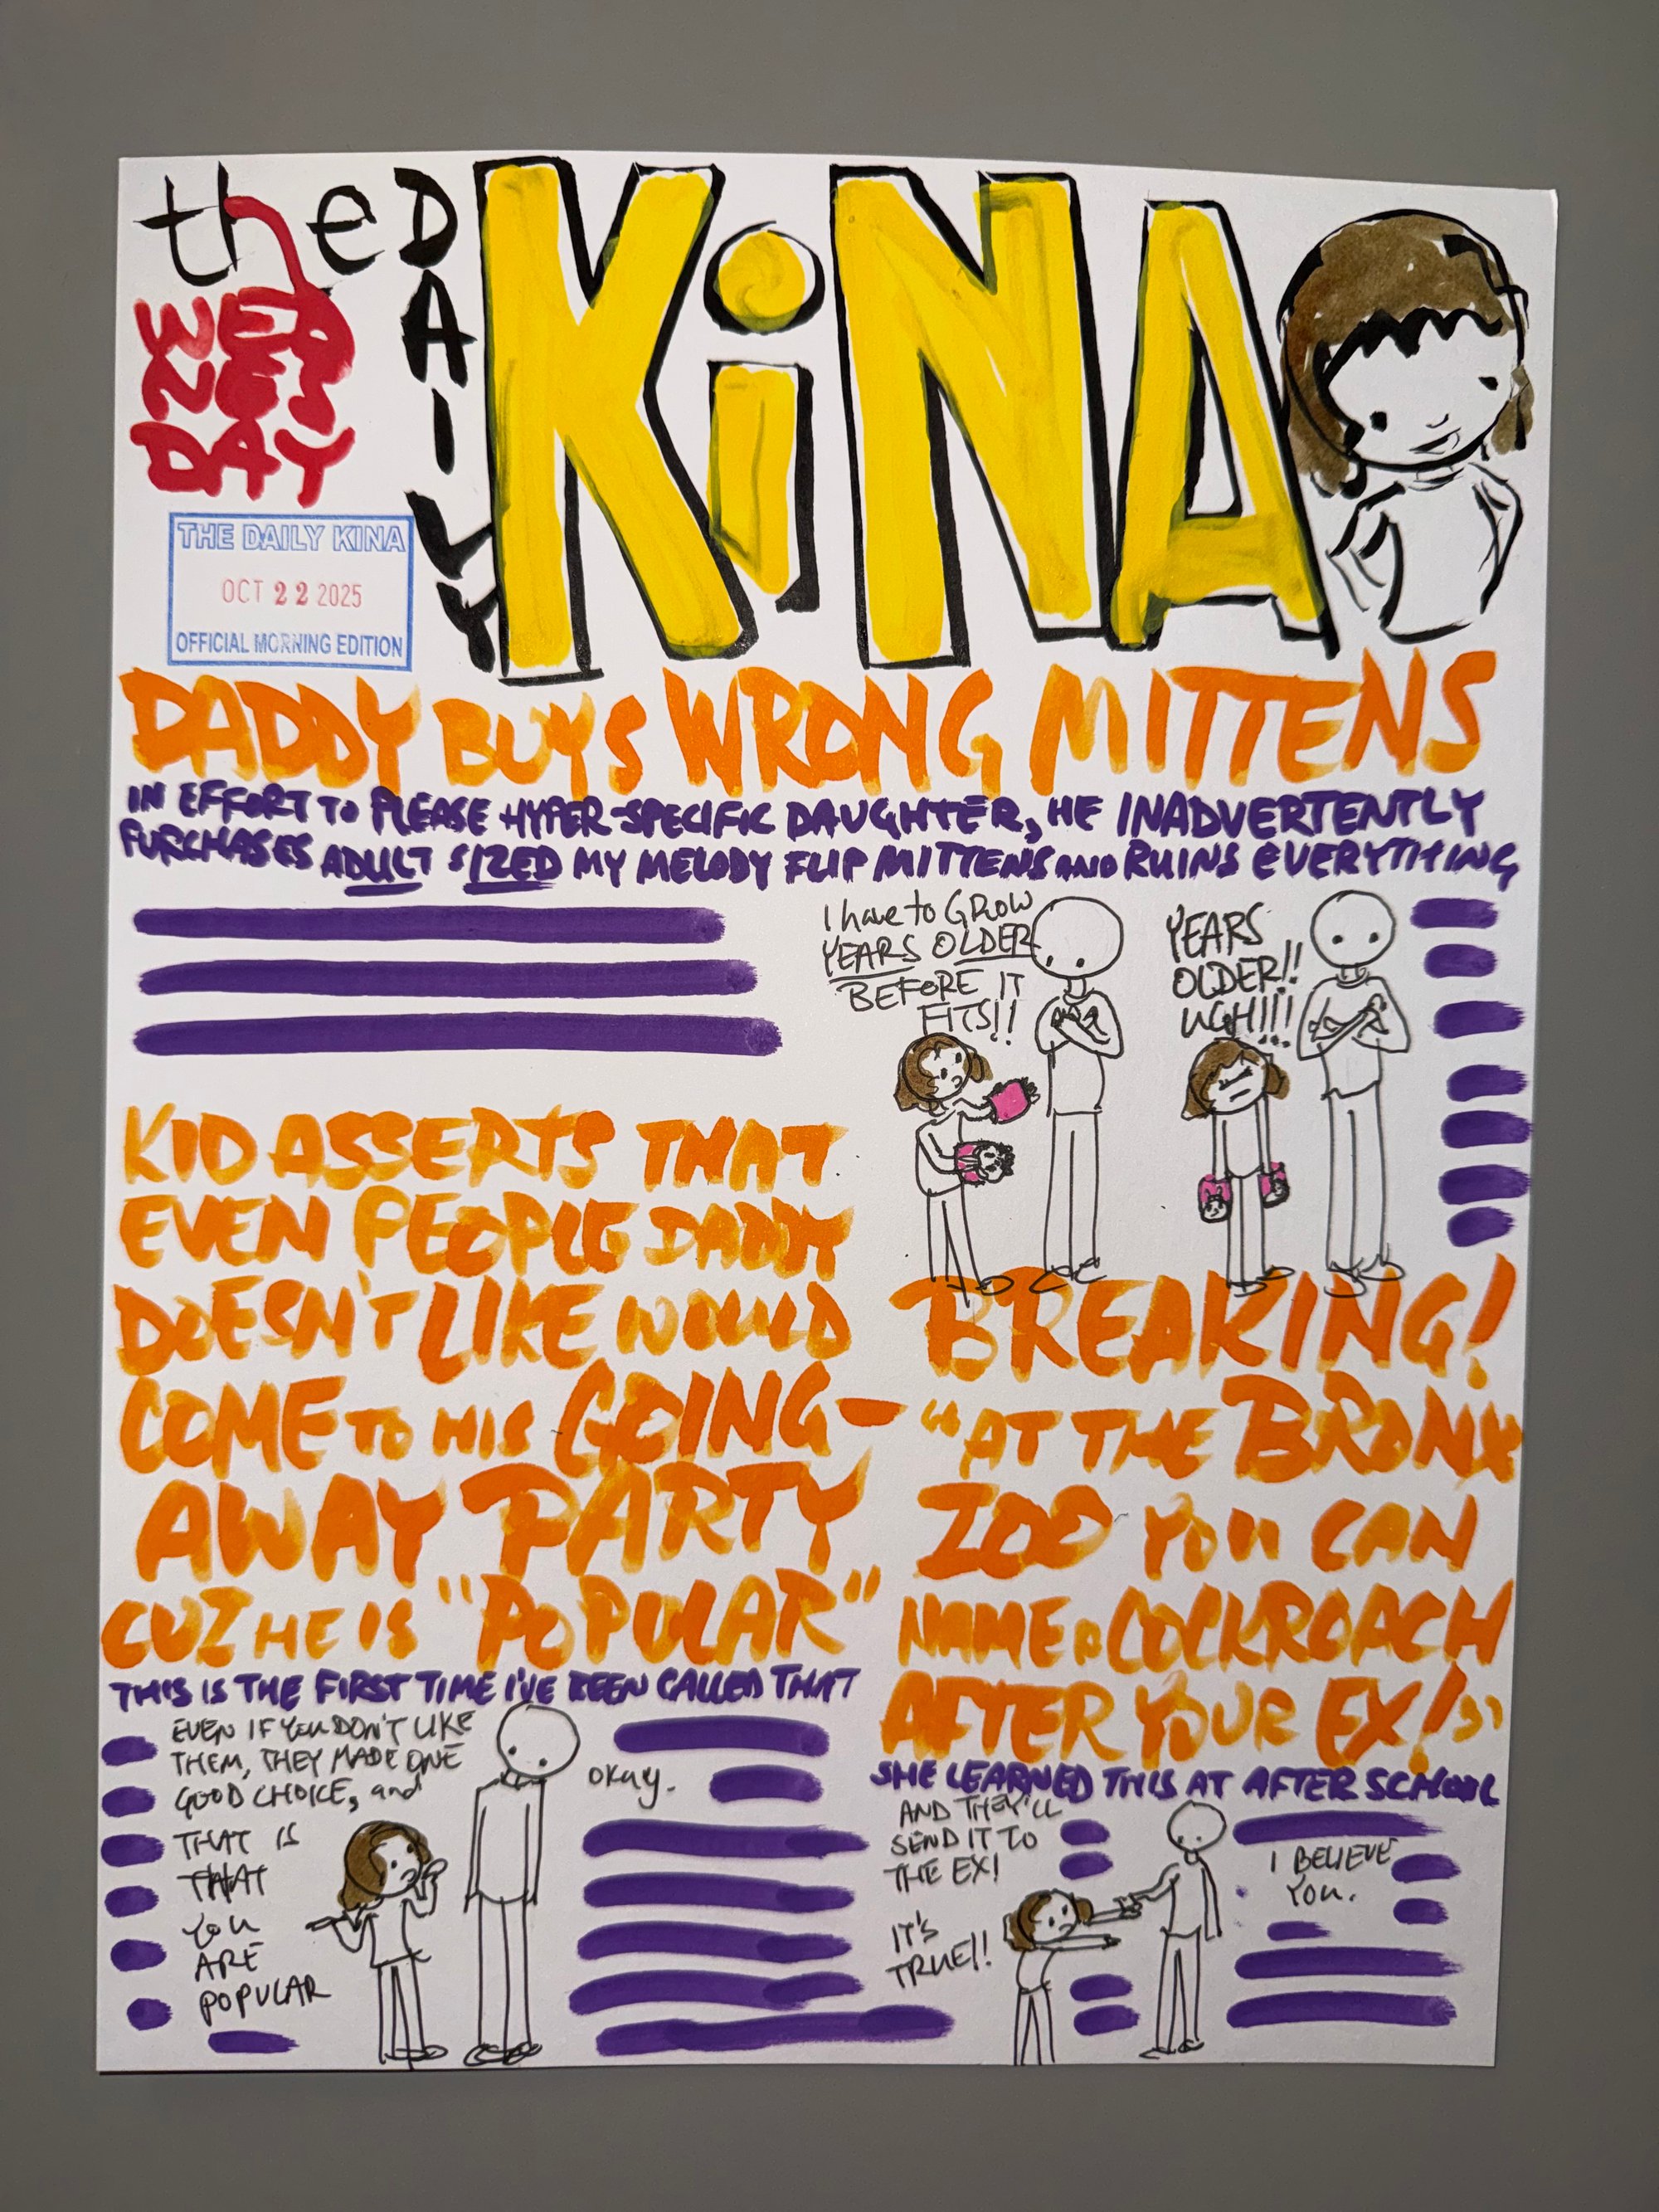 the DAILY KiNA
WEDNESDAY
THE DAILY KINA
OCT 22 2025
OFFICIAL MORNING EDITION
DADDY BUYS WRONG MITTENS
IN EFFORT TO PLEASE HYPER-SPECIFIC DAUGHTER, HE INADVERTENTLY
PURCHASES ADULT SIZED MY MELODY FLIP MITTENS AND RUINS EVERYTHING
I have to GROW
YEARS OLDER
BEFORE IT
FITS!!
YEARS
OLDER!!
UGH!!!
KID ASSERTS THAT
EVEN PEOPLE DADDY
DOESN'T LIKE WOULD
COME TO HIS GOING-
AWAY PARTY
CUZ HE IS "POPULAR"
THIS IS THE FIRST TIME I'VE BEEN CALLED THAT
EVEN IF YOU DON'T LIKE
THEM, THEY MADE ONE
GOOD CHOICE, and
THAT IS
THAT
you
ARE
POPULAR
okay.
BREAKING!
"AT THE BRONX
ZOO YOU CAN
NAME A COCKROACH
AFTER YOUR EX!"
SHE LEARNED THIS AT AFTER SCHOOL
AND THEY'LL
SEND IT TO
THE EX!
IT'S
TRUE!!
I BELIEVE
YOU.